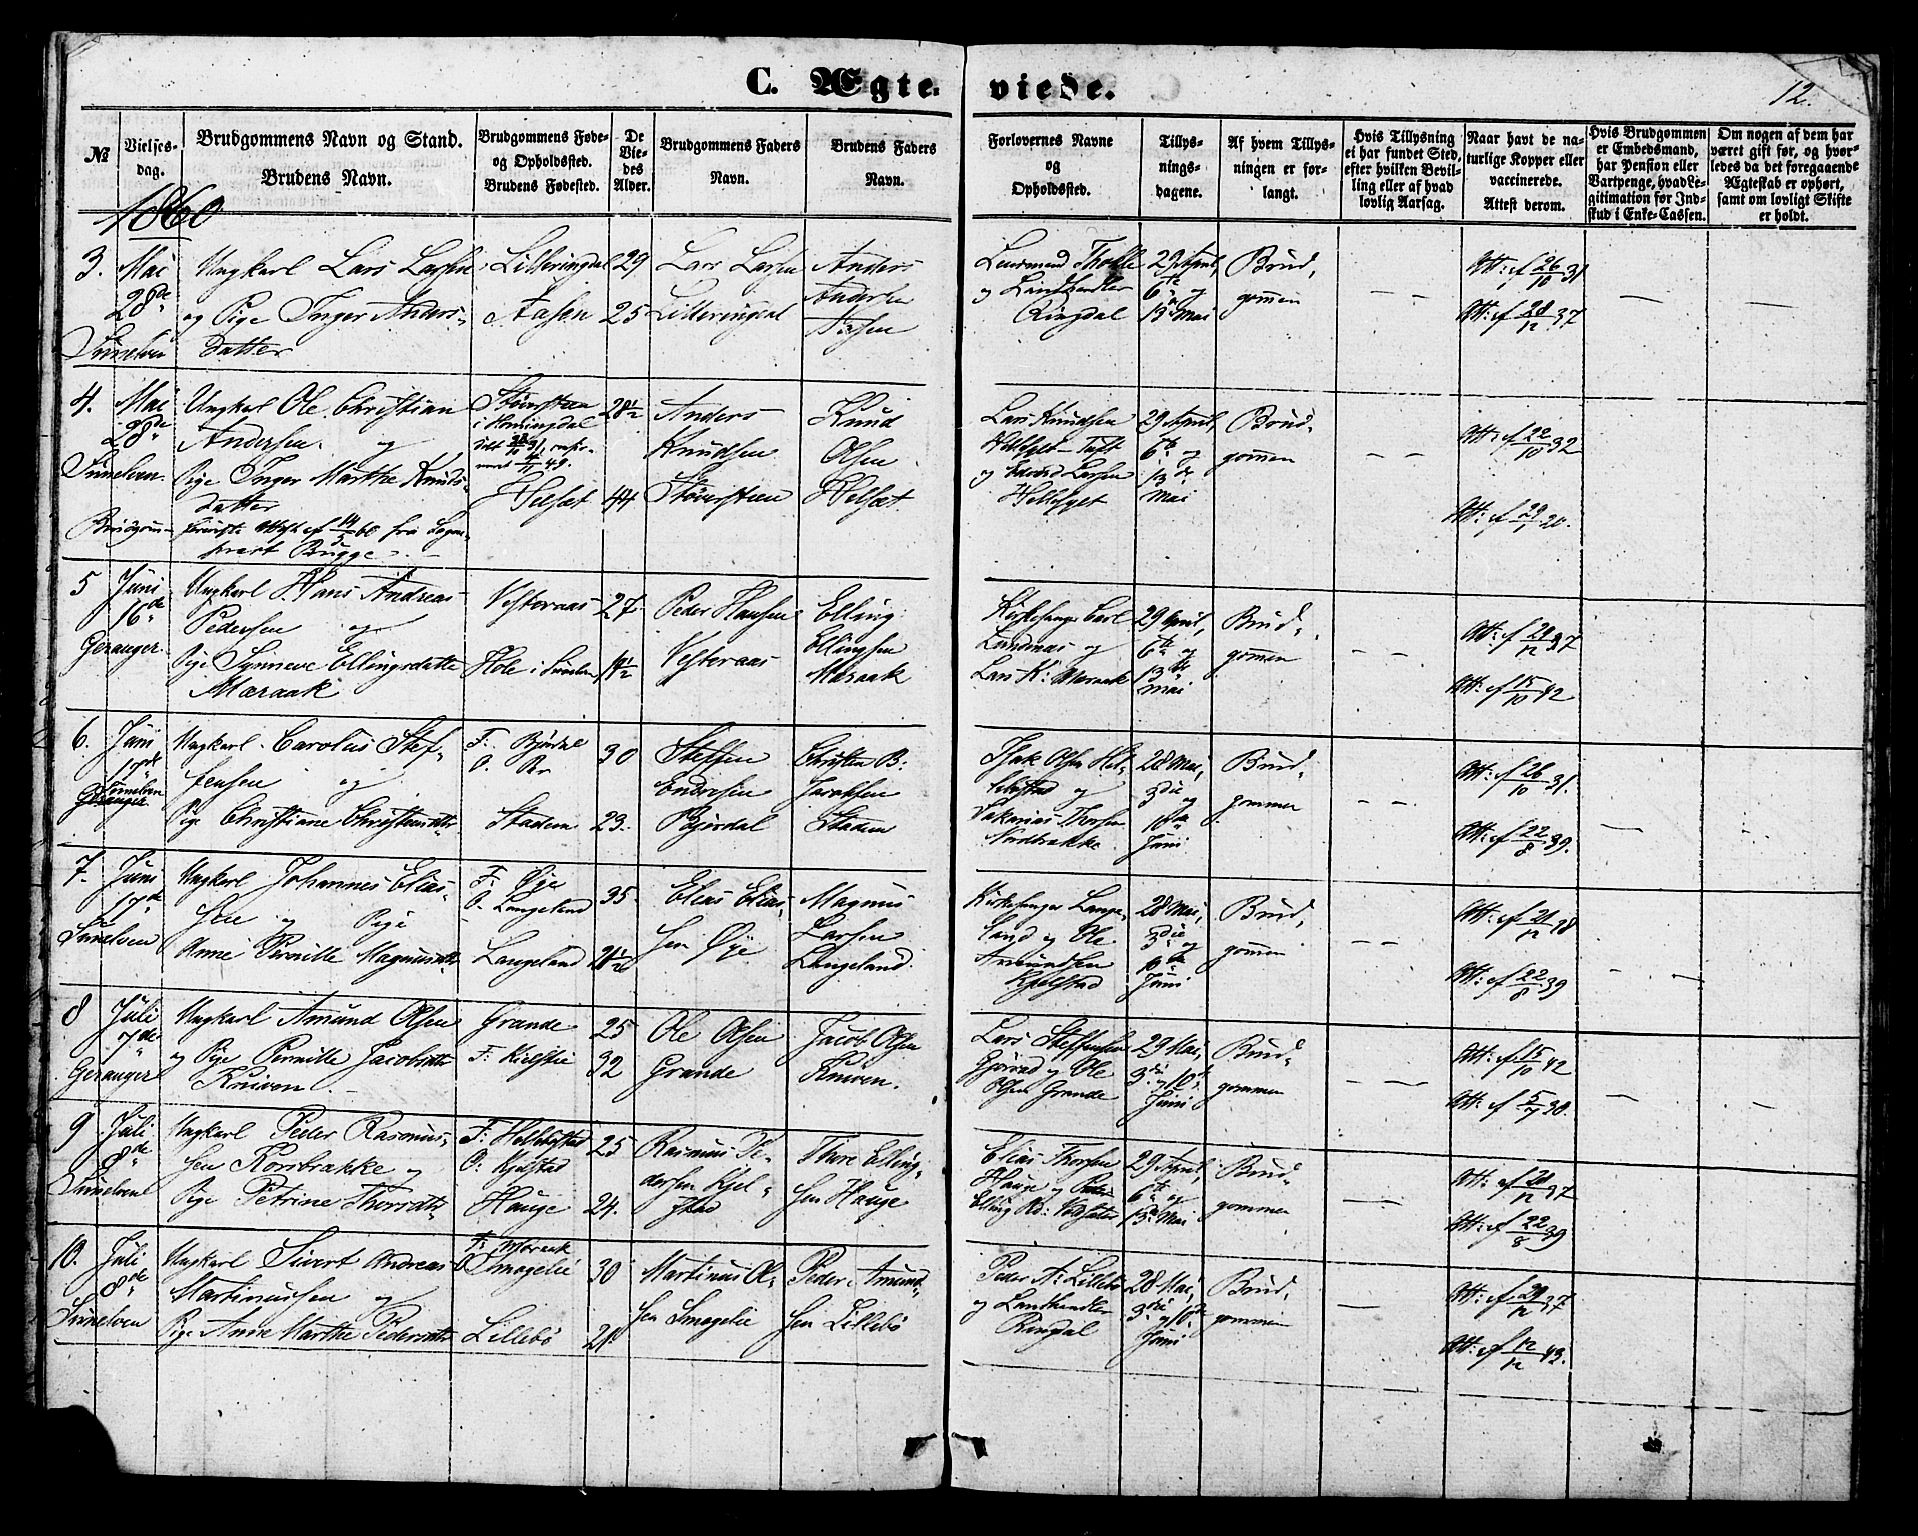 C. Ægteviede.
12.
№
Vielses-
dag.
Brudgommens Navn og Stand.
Brudens Navn.
Brudgommens Føde-
og Opholdssted.
Brudens Fødested.
De
Vie-
des
Alder.
Brudgommens Faders
Navn.
Brudens Faders
Navn.
Forlovernes Navne
og
Opholdssted.
Tillys-
nings-
dagene.
Af hvem Tillys-
ningen er for-
langt.
Hvis Tillysning
ei har fundet Sted,
efter hvilken Bevil-
ling eller af hvad
lovlig Aarsag.
Naar havt de na-
turlige Kopper eller
vaccinerede.
Attest derom.
Hvis Brudgommen
er Embedsmand,
har Pension eller
Vartpenge, hvad Le-
gitimation for Ind-
skud i Enke-Cassen.
Om nogen af dem har
været gift før, og hvor-
ledes da det foregaaende
Ægteskab er ophørt,
samt om lovligt Skifte
er holdt.
1860
3.
Mai
28de
Sunelven
Ungkarl Lars Larsen
og Pige Inger Anders-
datter
Litleringdal
Aasen
29
25
Lars Larsen
Litleringdal
Anders
Andersen
Aasen
Lensmand Tholle
og Landhandler
Ringdal
29 April,
6te og
13de Mai
Brud-
gommen
Att: af 26/10 31
Att: af 28/12 37
4.
Mai
28de
Sunelven
Ungkarl Ole Christian
Andersen og
Pige Inger Marthe Knuds-
datter
Støversteen
i Horningdal
Helset
28½
44
Anders
Knudsen
Støversteen
Knud
Olsen
Helset
Lars Knudsen
Tuft
og Edvard Larsen
Hellesylt
29 April,
6te og
13de
Mai
Brud-
gommen
Att: af 22/10 32
Att: af 29/1 20.
5
Juni
16de
Geranger
Ungkarl Hans Andreas
Pedersen og
Pige Synneve Ellingsdatter
Maraak
Vesteraas
Hole i Sunelven
27
19½
Peder Hansen
Vesteraas
Elling
Ellingsen
Maraak
Kirkesanger Carl
Lundanæs og
Lars K: Maraak
29 April,
6te og
13de
Mai
Brud-
gommen
Att: af 28/12 37
Att: af 15/10 42
6.
Juni
17de
Sunelven
Geranger
Ungkarl Carolus Stef-
fensen og
Pige Christiane Christensdtr
F: Bjørdal
O.
Stadem
30
23.
Steffen
Endresen
Bjørdal
Christen B.
Jacobsen
Stadem
Isak Olsen Hel-
lebstad og
Zakarias Thorsen
Nordbrække
28 Mai,
3die og
10de
Juni
Brud-
gommen
Att: af 26/10 31.
Att: af 22/8 39.
7.
Juni
17de
Sunelven
Ungkarl Johannes Elias-
sen og Pige
Anne Pernille Magnusdtr
F: Øye
O. Langeland
Langeland
35.
21½
Elias Elias-
sen Øye
Magnus
Larsen
Langeland.
Kirkesanger Lange-
land og Ole
Amundsen
Kjelstad
28 Mai,
3die og
10de
Juni
Brud-
gommen
Att: af 21/12 38
Att: af 22/8 39
8
Juli
7de
Geranger
Ungkarl Amund Olsen
og Pige Pernille Jacobsdtr
Kniven
Grande
25
32
Ole Olsen
Grande
Jacob Olsen
Kniven.
Lars Steffensen
Gjørvad og Ole
Olsen Grande
29 Mai,
3die og 10de
Juni
Brud-
gommen
Att: af 15/10 42
Att: af 5/7 30.
9
Juli
8de
Sunelven
Ungkarl Peder Rasmus-
sen Korsbrække og
Pige Petrine Thorsdtr
F: Hellebstad
O: Kjelstad
Hauge
25
24.
Rasmus Pe-
dersen Kjel-
stad
Thore Elling-
sen Hauge
Elias Thorsen
Hauge og
29 April,
6te og
13de Mai
Brud-
gommen
Att: af 28/12 37
Att: af 22/8 39
10.
Juli
8de
Sunelven
Ungkarl Sivert Andreas
Martinussen og
Pige Anne Marthe Pedersdtr
F: Maraak
O. Smogelie
Lillebø
30
21.
Martinus Ol-
sen Smogelie
Peder Amund-
sen Lillebø
Peder A: Lillebø
og Landhandler
Ringdal
28 Mai,
3die og 10de
Juni
Brud-
gommen
Att: af 29/12 37
Att: af 12/12 43.